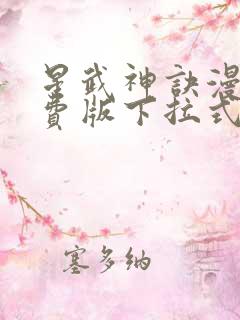 星武神訣漫
費版下拉式
塞多納